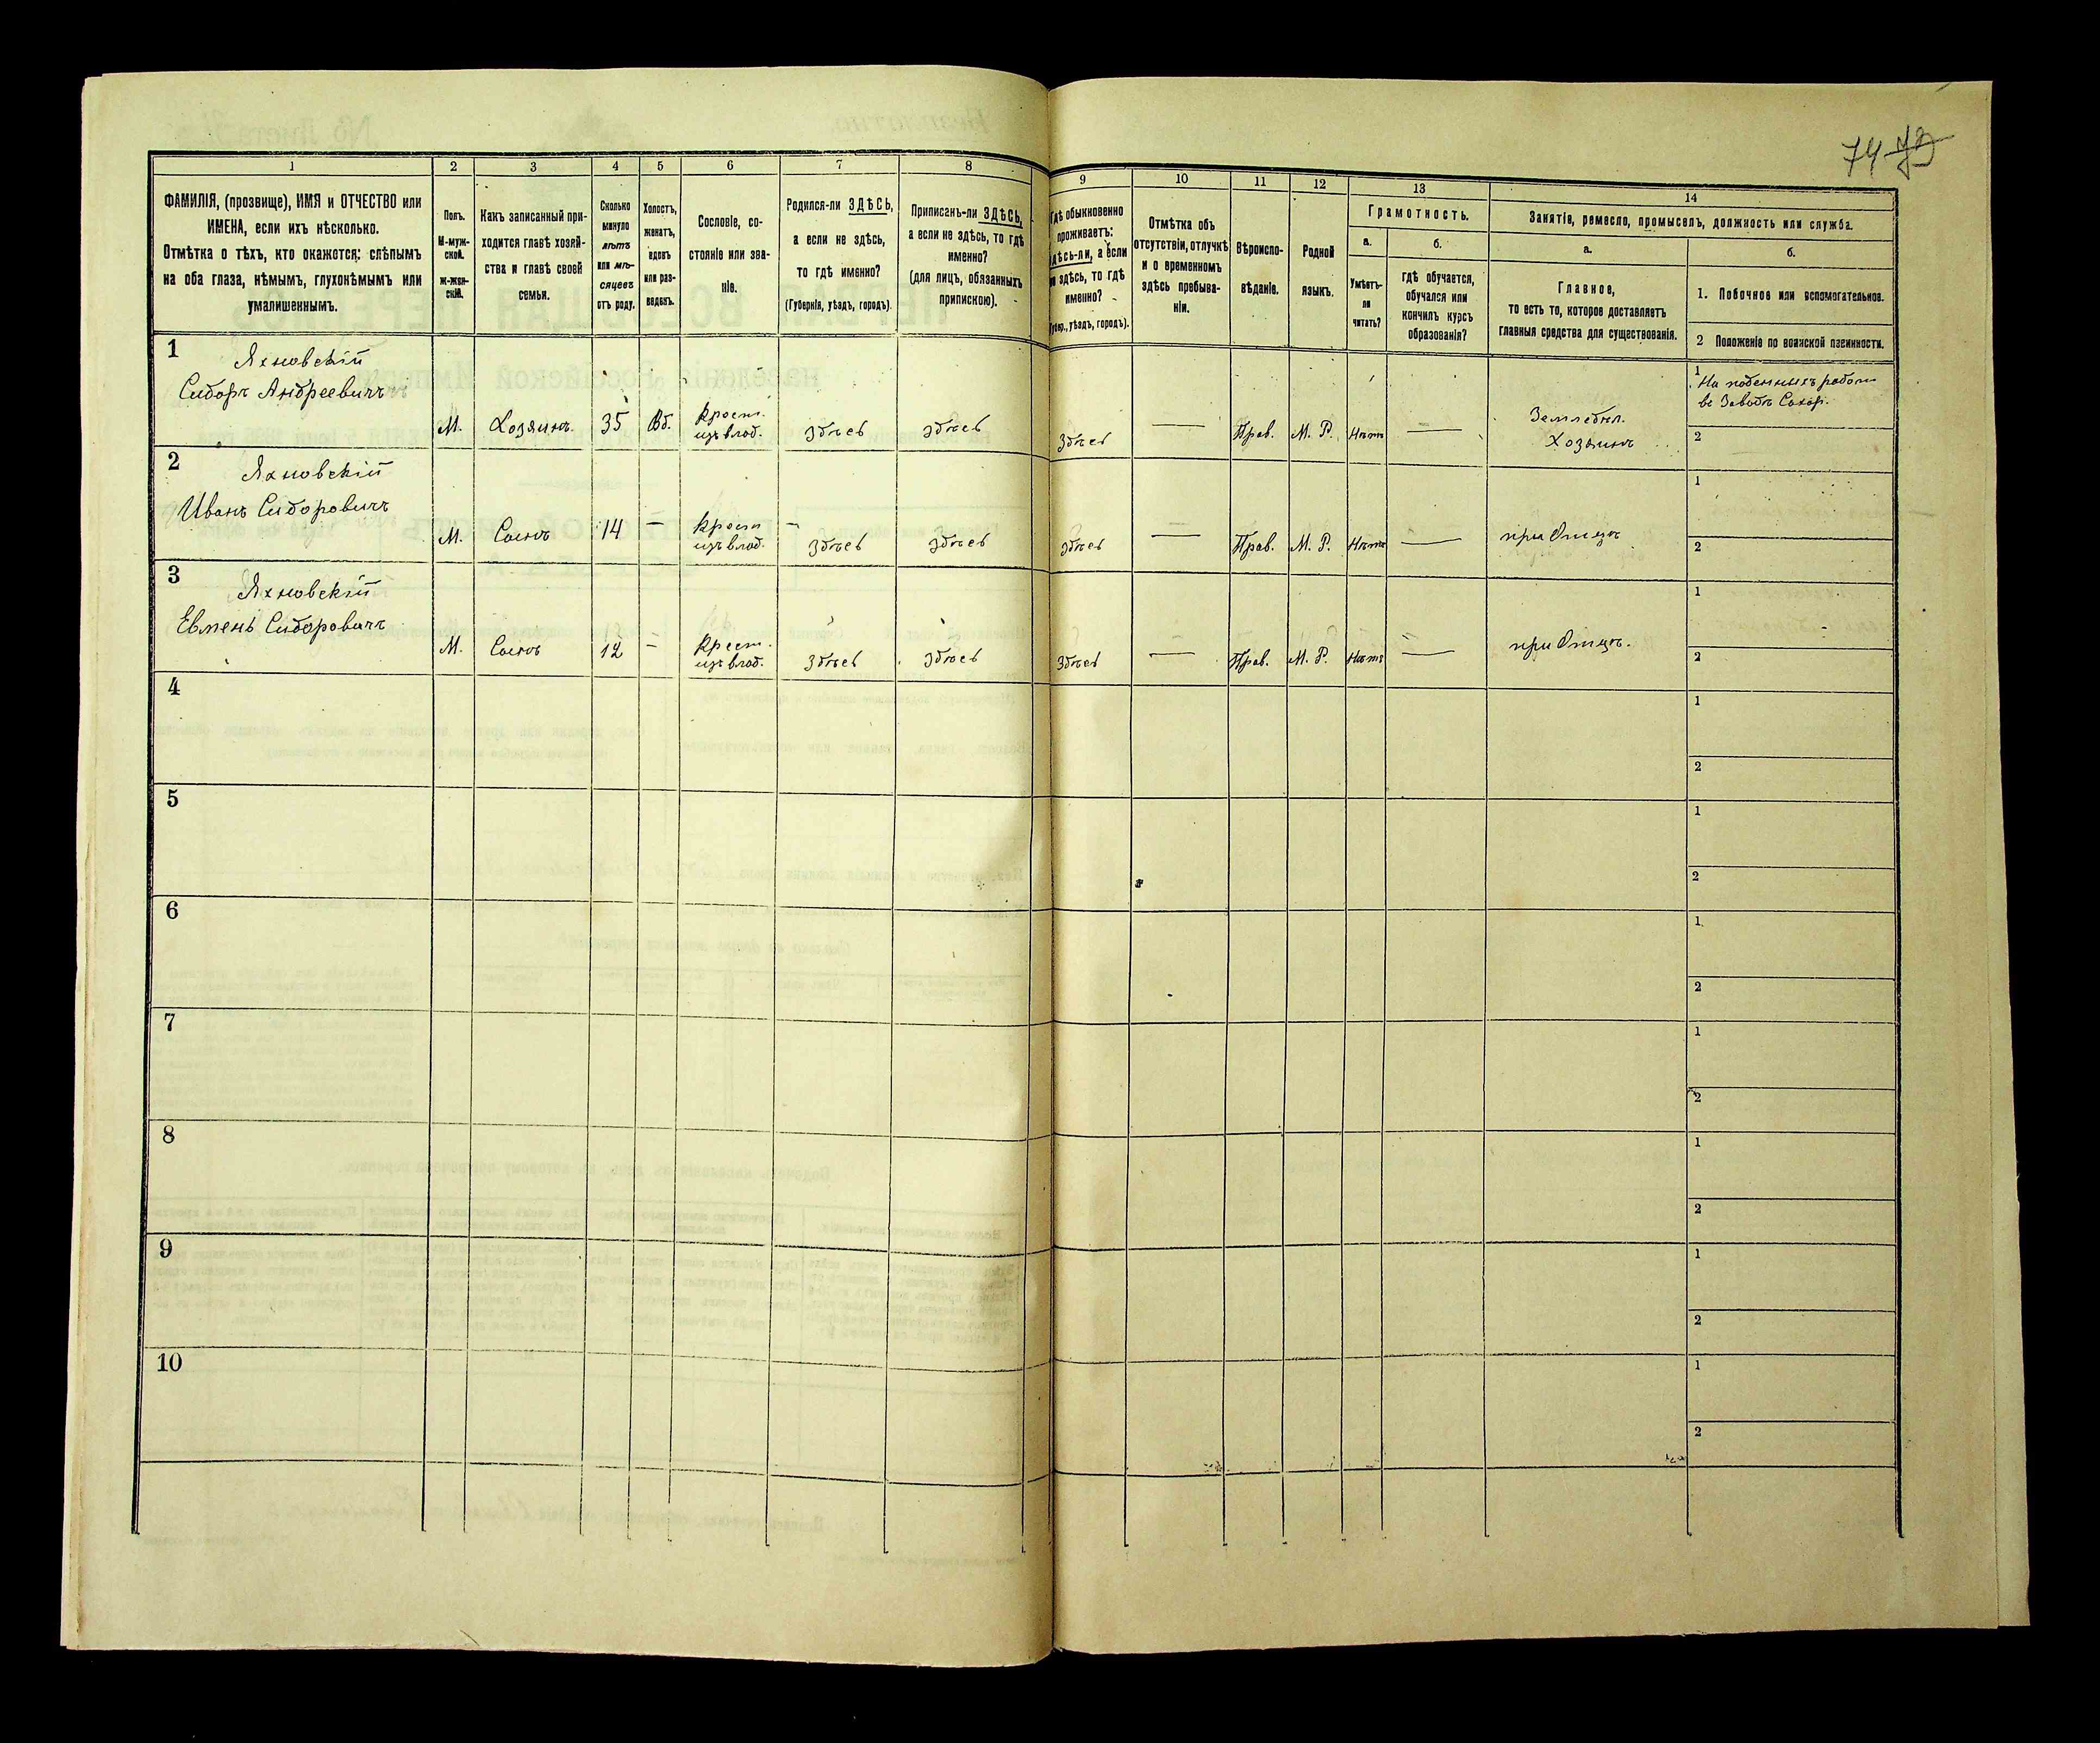 74 72
1
2
3
4
5
6
7
8
9
10
11
12
13
14
ФАМИЛІЯ, (прозвище), ИМЯ и ОТЧЕСТВО или
ИМЕНА, если ихъ нѣсколько.
Отмѣтка о тѣхъ, кто окажется: слѣпымъ
на оба глаза, нѣмымъ, глухонѣмымъ или
умалишеннымъ.
Полъ.
М-муж-
ской.
ж-жен-
скій.
Какъ записанный при-
ходится главѣ хозяй-
ства и главѣ своей
семьи.
Сколько
минуло
лѣтъ
или мѣ-
сяцевъ
отъ роду.
Холостъ,
женатъ,
вдовъ
или раз-
веденъ.
Сословіе, со-
стояніе или зва-
ніе.
Родился-ли ЗДѢСЬ,
а если не здѣсь,
то гдѣ именно?
(Губернія, уѣздъ, городъ).
Приписанъ-ли ЗДѢСЬ,
а если не здѣсь, то гдѣ
именно?
(для лицъ, обязанныхъ
припискою).
Гдѣ обыкновенно
проживаетъ:
здѣсь-ли, а если
не здѣсь, то гдѣ
именно?
(Губер., уѣздъ, городъ).
Отмѣтка объ
отсутствіи, отлучкѣ
и о временномъ
здѣсь пребыва-
ніи.
Вѣроиспо-
вѣданіе.
Родной
языкъ.
Грамотность.
а.
б.
Умѣетъ-
ли
читать?
гдѣ обучается,
обучался или
кончилъ курсъ
образованія?
Занятіе, ремесло, промыселъ, должность или служба.
а.
б.
Главное,
то есть то, которое доставляетъ
главныя средства для существованія.
1. Побочное или вспомогательное.
2 Положеніе по воинской повинности.
1
Яхновскій
Сидоръ Андреевичъ
М.
Хозяинъ
35
Вд.
Крест.
изъ влад.
Здѣсь
Здѣсь
Здѣсь
—
Прав.
М. Р.
Нѣтъ
—
Земледѣл.
Хозяинъ
1
На поденныхъ работ.
въ Заводѣ Сахар.
2
2
Яхновскій
Иванъ Сидоровичъ
М.
Сынъ
14
—
Крест
изъ влад.
Здѣсь
Здѣсь
Здѣсь
—
Прав.
М. Р.
Нѣтъ
—
при Отцѣ
1
2
3
Яхновскій
Евмень Сидоровичъ
М.
Сынъ
12
—
Крест.
изъ влад.
Здѣсь
Здѣсь
Здѣсь
—
Прав.
М. Р.
Нѣтъ
—
при Отцѣ.
1
2
4
1
2
5
1
2
6
1
2
7
1
2
8
1
2
9
1
2
10
1
2